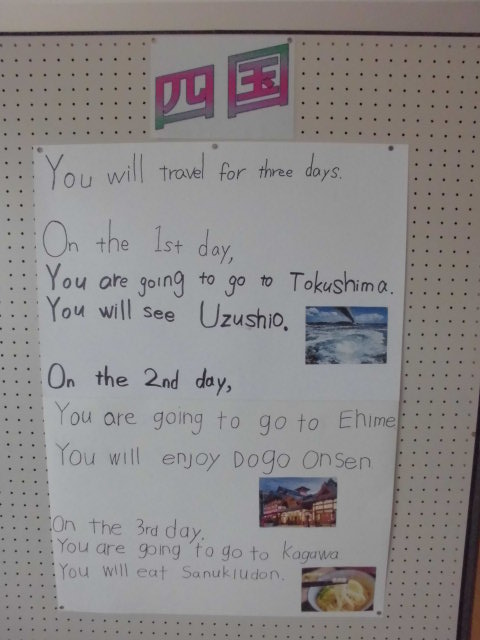 四国
You will travel for three days.
On the 1st day,
You are going to go to Tokushima.
You will see Uzushio.
On the 2nd day,
You are going to go to Ehime
You will enjoy Dogo Onsen
On the 3rd day,
You are going to go to Kagawa
You will eat Sanukiudon.